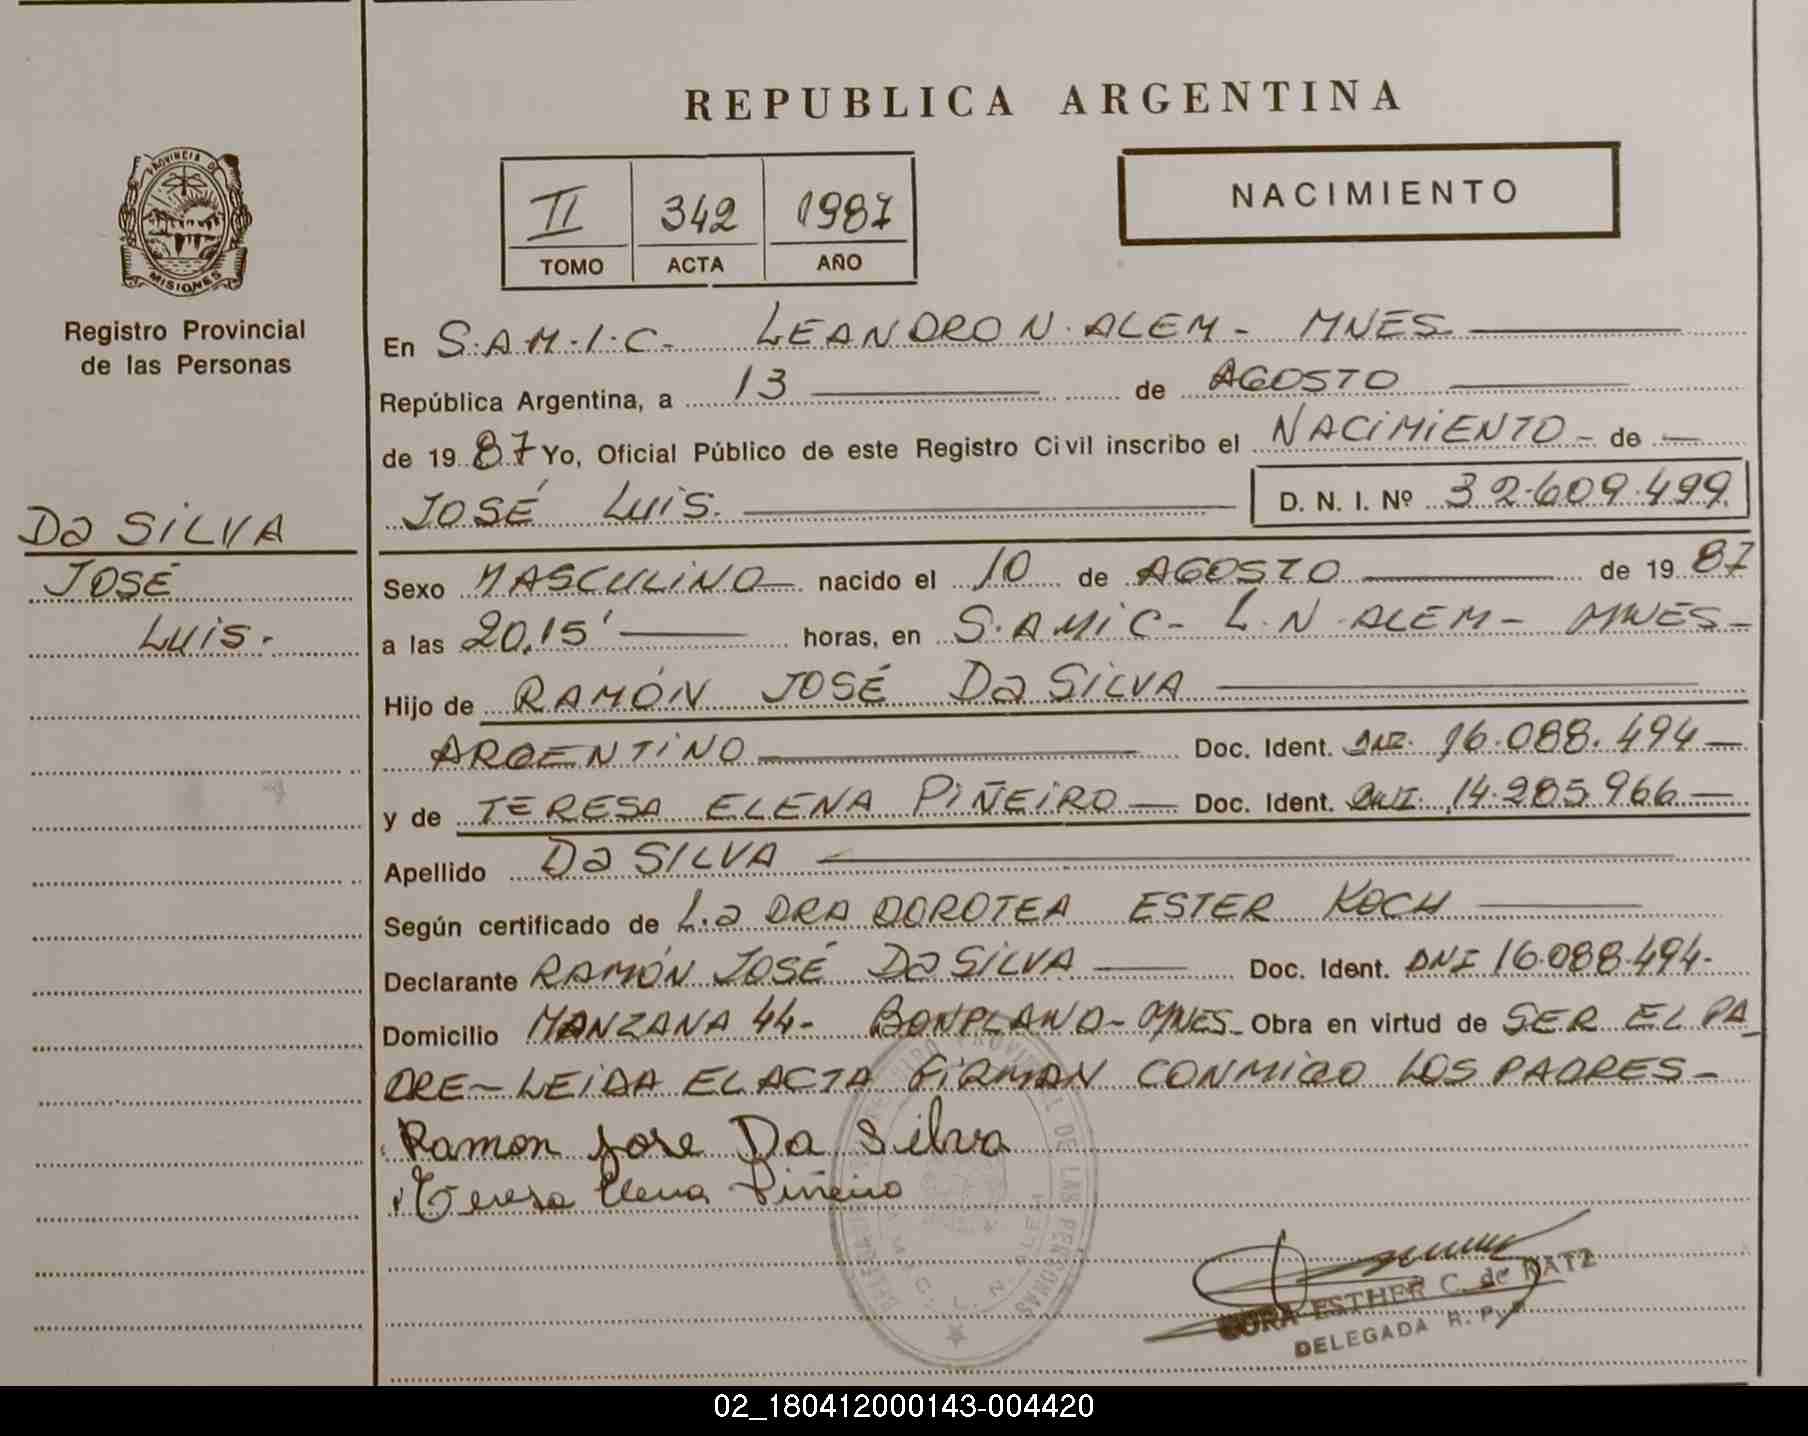 REPUBLICA ARGENTINA
PROVINCIA DE
MISIONES
Registro Provincial
de las Personas
II 342 1987
TOMO ACTA AÑO
NACIMIENTO
En S.A.M.I.C- LEANDRO N. ALEM - MNES
República Argentina, a 13 de AGOSTO
de 1987 Yo, Oficial Público de este Registro Civil inscribo el NACIMIENTO - de
JOSÉ LUIS. D. N. I. Nº 32.609.499
Da SILVA
JOSÉ
LUIS.
Sexo MASCULINO nacido el 10 de AGOSTO de 1987
a las 20,15' horas, en S.AMIC- L.N.ALEM - MNES-
Hijo de RAMÓN JOSÉ Da SILVA
ARGENTINO Doc. Ident. DNI. 16.088.494
y de TERESA ELENA PIÑEIRO Doc. Ident. DNI. 14.285.966
Apellido Da SILVA
Según certificado de La DRA DOROTEA ESTER KOCH
Declarante RAMÓN JOSÉ Da SILVA Doc. Ident. DNI 16.088.494-
Domicilio MANZANA 44- BONPLAND-MNES- Obra en virtud de SER EL PA-
DRE-LEIDA EL ACTA FIRMAN CONMIGO LOS PADRES-
Ramon Jose Da Silva
Teresa Elena Piñeiro
ESTHER C. de RATZ
DELEGADA R. P.
02_180412000143-004420